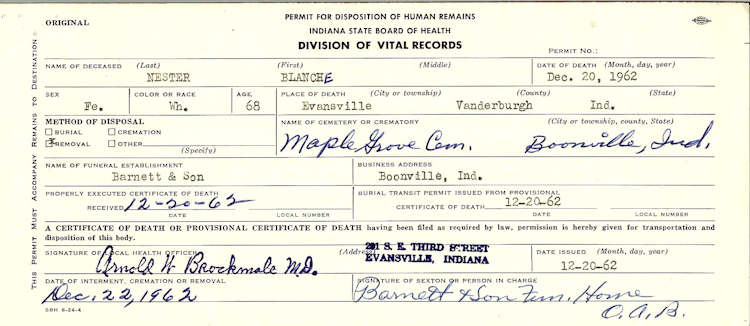 ORIGINAL
PERMIT FOR DISPOSITION OF HUMAN REMAINS
INDIANA STATE BOARD OF HEALTH
DIVISION OF VITAL RECORDS
PERMIT NO.:
THIS PERMIT MUST ACCOMPANY REMAINS TO DESTINATION
NAME OF DECEASED (Last) (First) (Middle) DATE OF DEATH (Month, day, year)
NESTER BLANCHE Dec. 20, 1962
SEX COLOR OR RACE AGE PLACE OF DEATH (City or township) (County) (State)
Fe. Wh. 68 Evansville Vanderburgh Ind.
METHOD OF DISPOSAL NAME OF CEMETERY OR CREMATORY (City or township, county, State)
BURIAL CREMATION
REMOVAL OTHER
(Specify)
Maple Grove Cem. Boonville, Ind.
NAME OF FUNERAL ESTABLISHMENT BUSINESS ADDRESS
Barnett & Son Boonville, Ind.
PROPERLY EXECUTED CERTIFICATE OF DEATH BURIAL TRANSIT PERMIT ISSUED FROM PROVISIONAL
RECEIVED 12-20-62 CERTIFICATE OF DEATH 12-20-62
DATE LOCAL NUMBER DATE LOCAL NUMBER
A CERTIFICATE OF DEATH OR PROVISIONAL CERTIFICATE OF DEATH having been filed as required by law, permission is hereby given for transportation and
disposition of this body.
SIGNATURE OF LOCAL HEALTH OFFICER (Address) 201 S. E. THIRD STREET DATE ISSUED (Month, day, year)
Arnold W Brockmole M.D. EVANSVILLE, INDIANA 12-20-62
DATE OF INTERMENT, CREMATION OR REMOVAL SIGNATURE OF SEXTON OR PERSON IN CHARGE
Dec. 22, 1962 Barnett & Son Fun. Home
O.A.B.
SBH 6-24-4